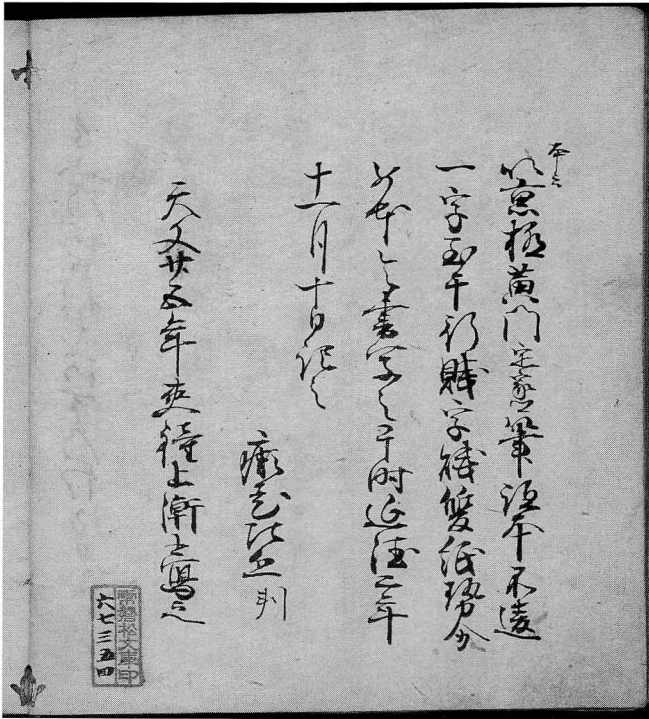 本云
以京極黄門定家筆跡本不違
一字至于行賦字賦雙紙勢分
如本令書写之于時延徳二年
十一月十日記之
老比丘判
天文廿五年夾鐘上澣書寫之
常磐松文庫印
六七三五四